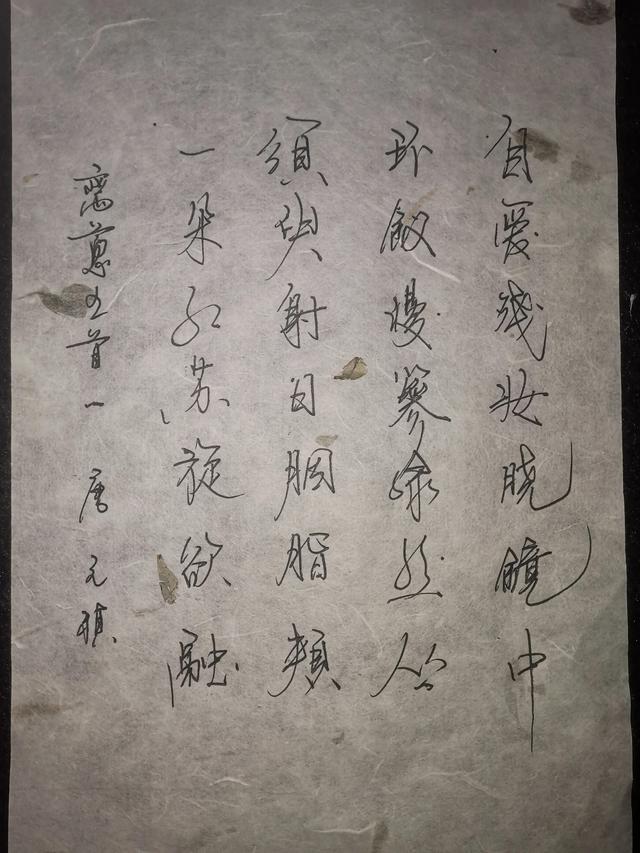 自爱残妆晓镜中
环钗慢篸绿丝丛
须臾射日胭脂颊
一朵红苏旋欲融
离思五首一 唐 元稹